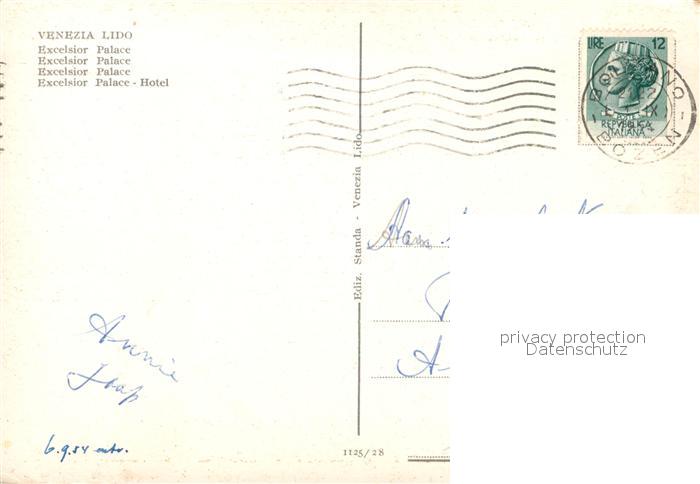 VENEZIA LIDO
Excelsior Palace
Excelsior Palace
Excelsior Palace
Excelsior Palace - Hotel
LIRE 12
REPVBBLICA
ITALIANA
BOLZANO
BOZEN
Ediz. Standa - Venezia Lido
Aan
privacy protection
Datenschutz
A-
Annie
Jaap
6.9.54
1125/28